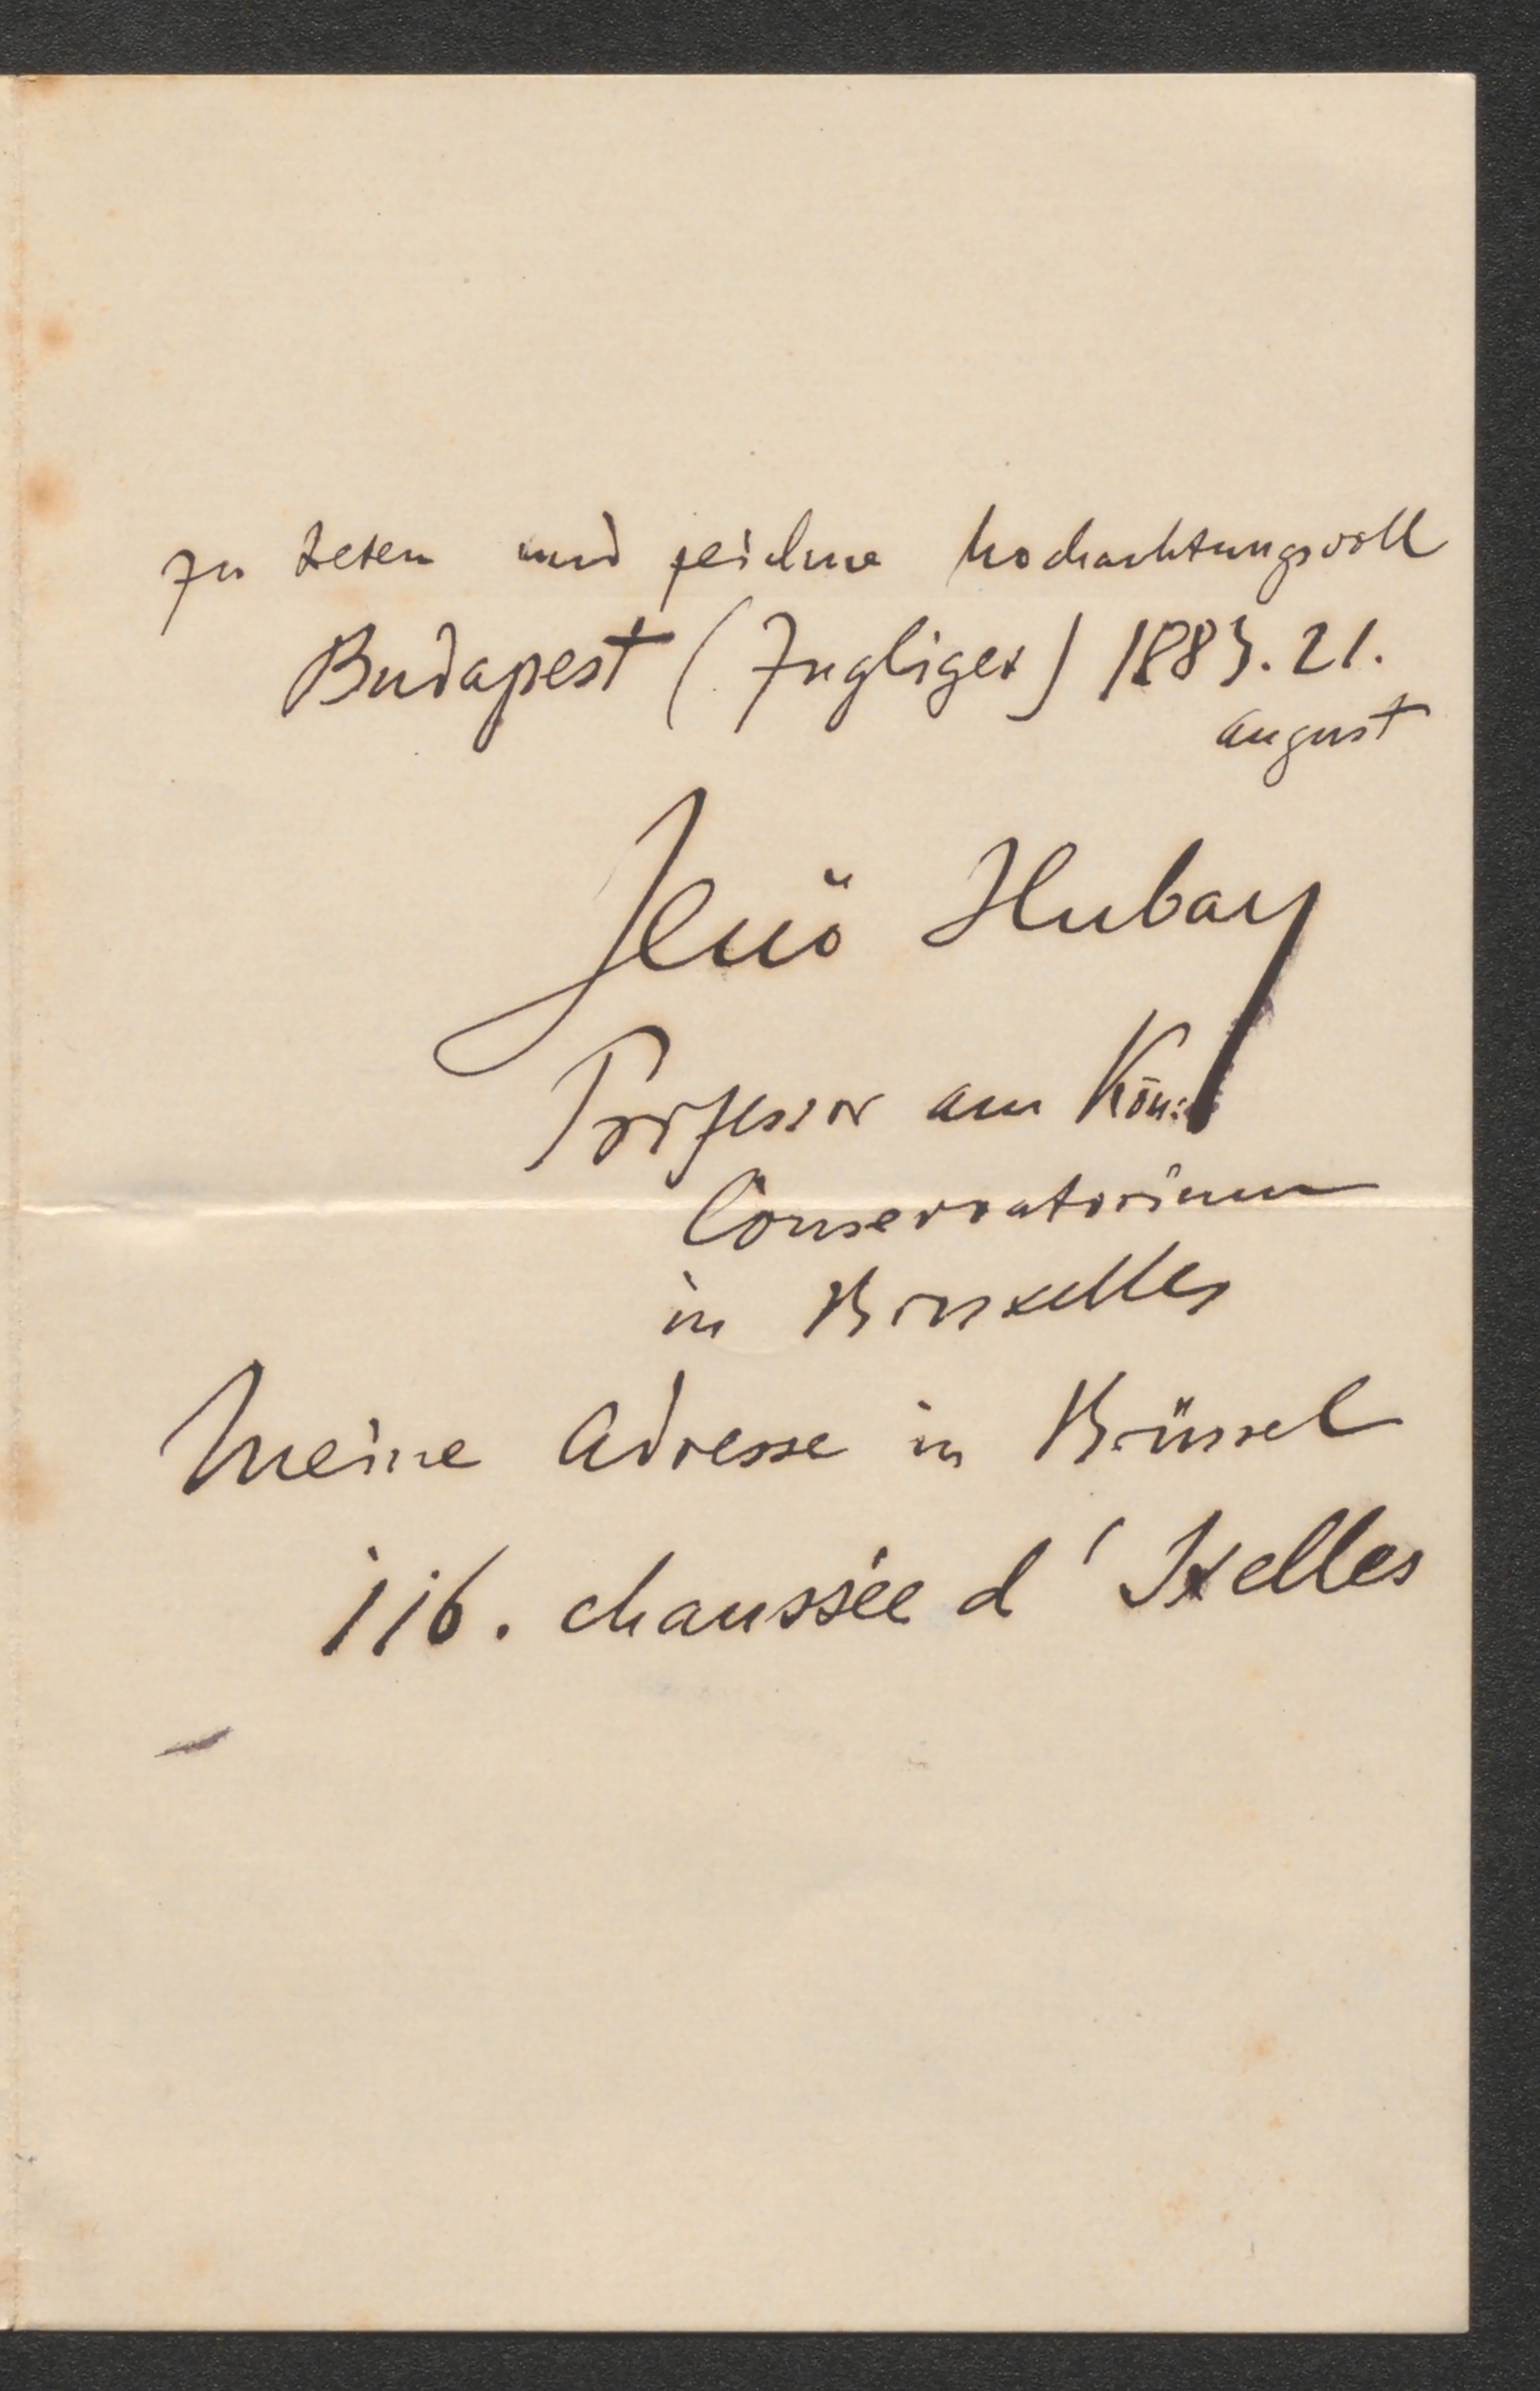 zu treten und zeichne hochachtungsvoll
Budapest (Zugliget) 1883. 21.
august
Jenö Hubay
Professor am Kön:
Conservatorium
in Bruxelles
Meine Adresse in Brüssel
116. chaussée d'Ixelles